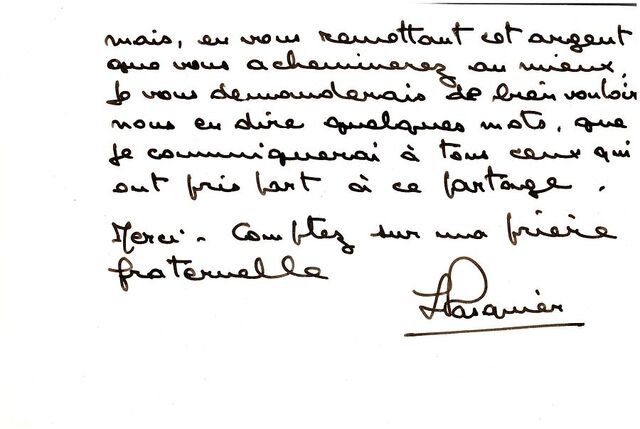 mais, en vous remettant cet argent
que vous acheminerez au mieux,
Je vous demanderais de bien vouloir
nous en dire quelques mots, que
je communiquerai à tous ceux qui
ont pris part à ce partage.
Merci. Comptez sur ma prière
fraternelle